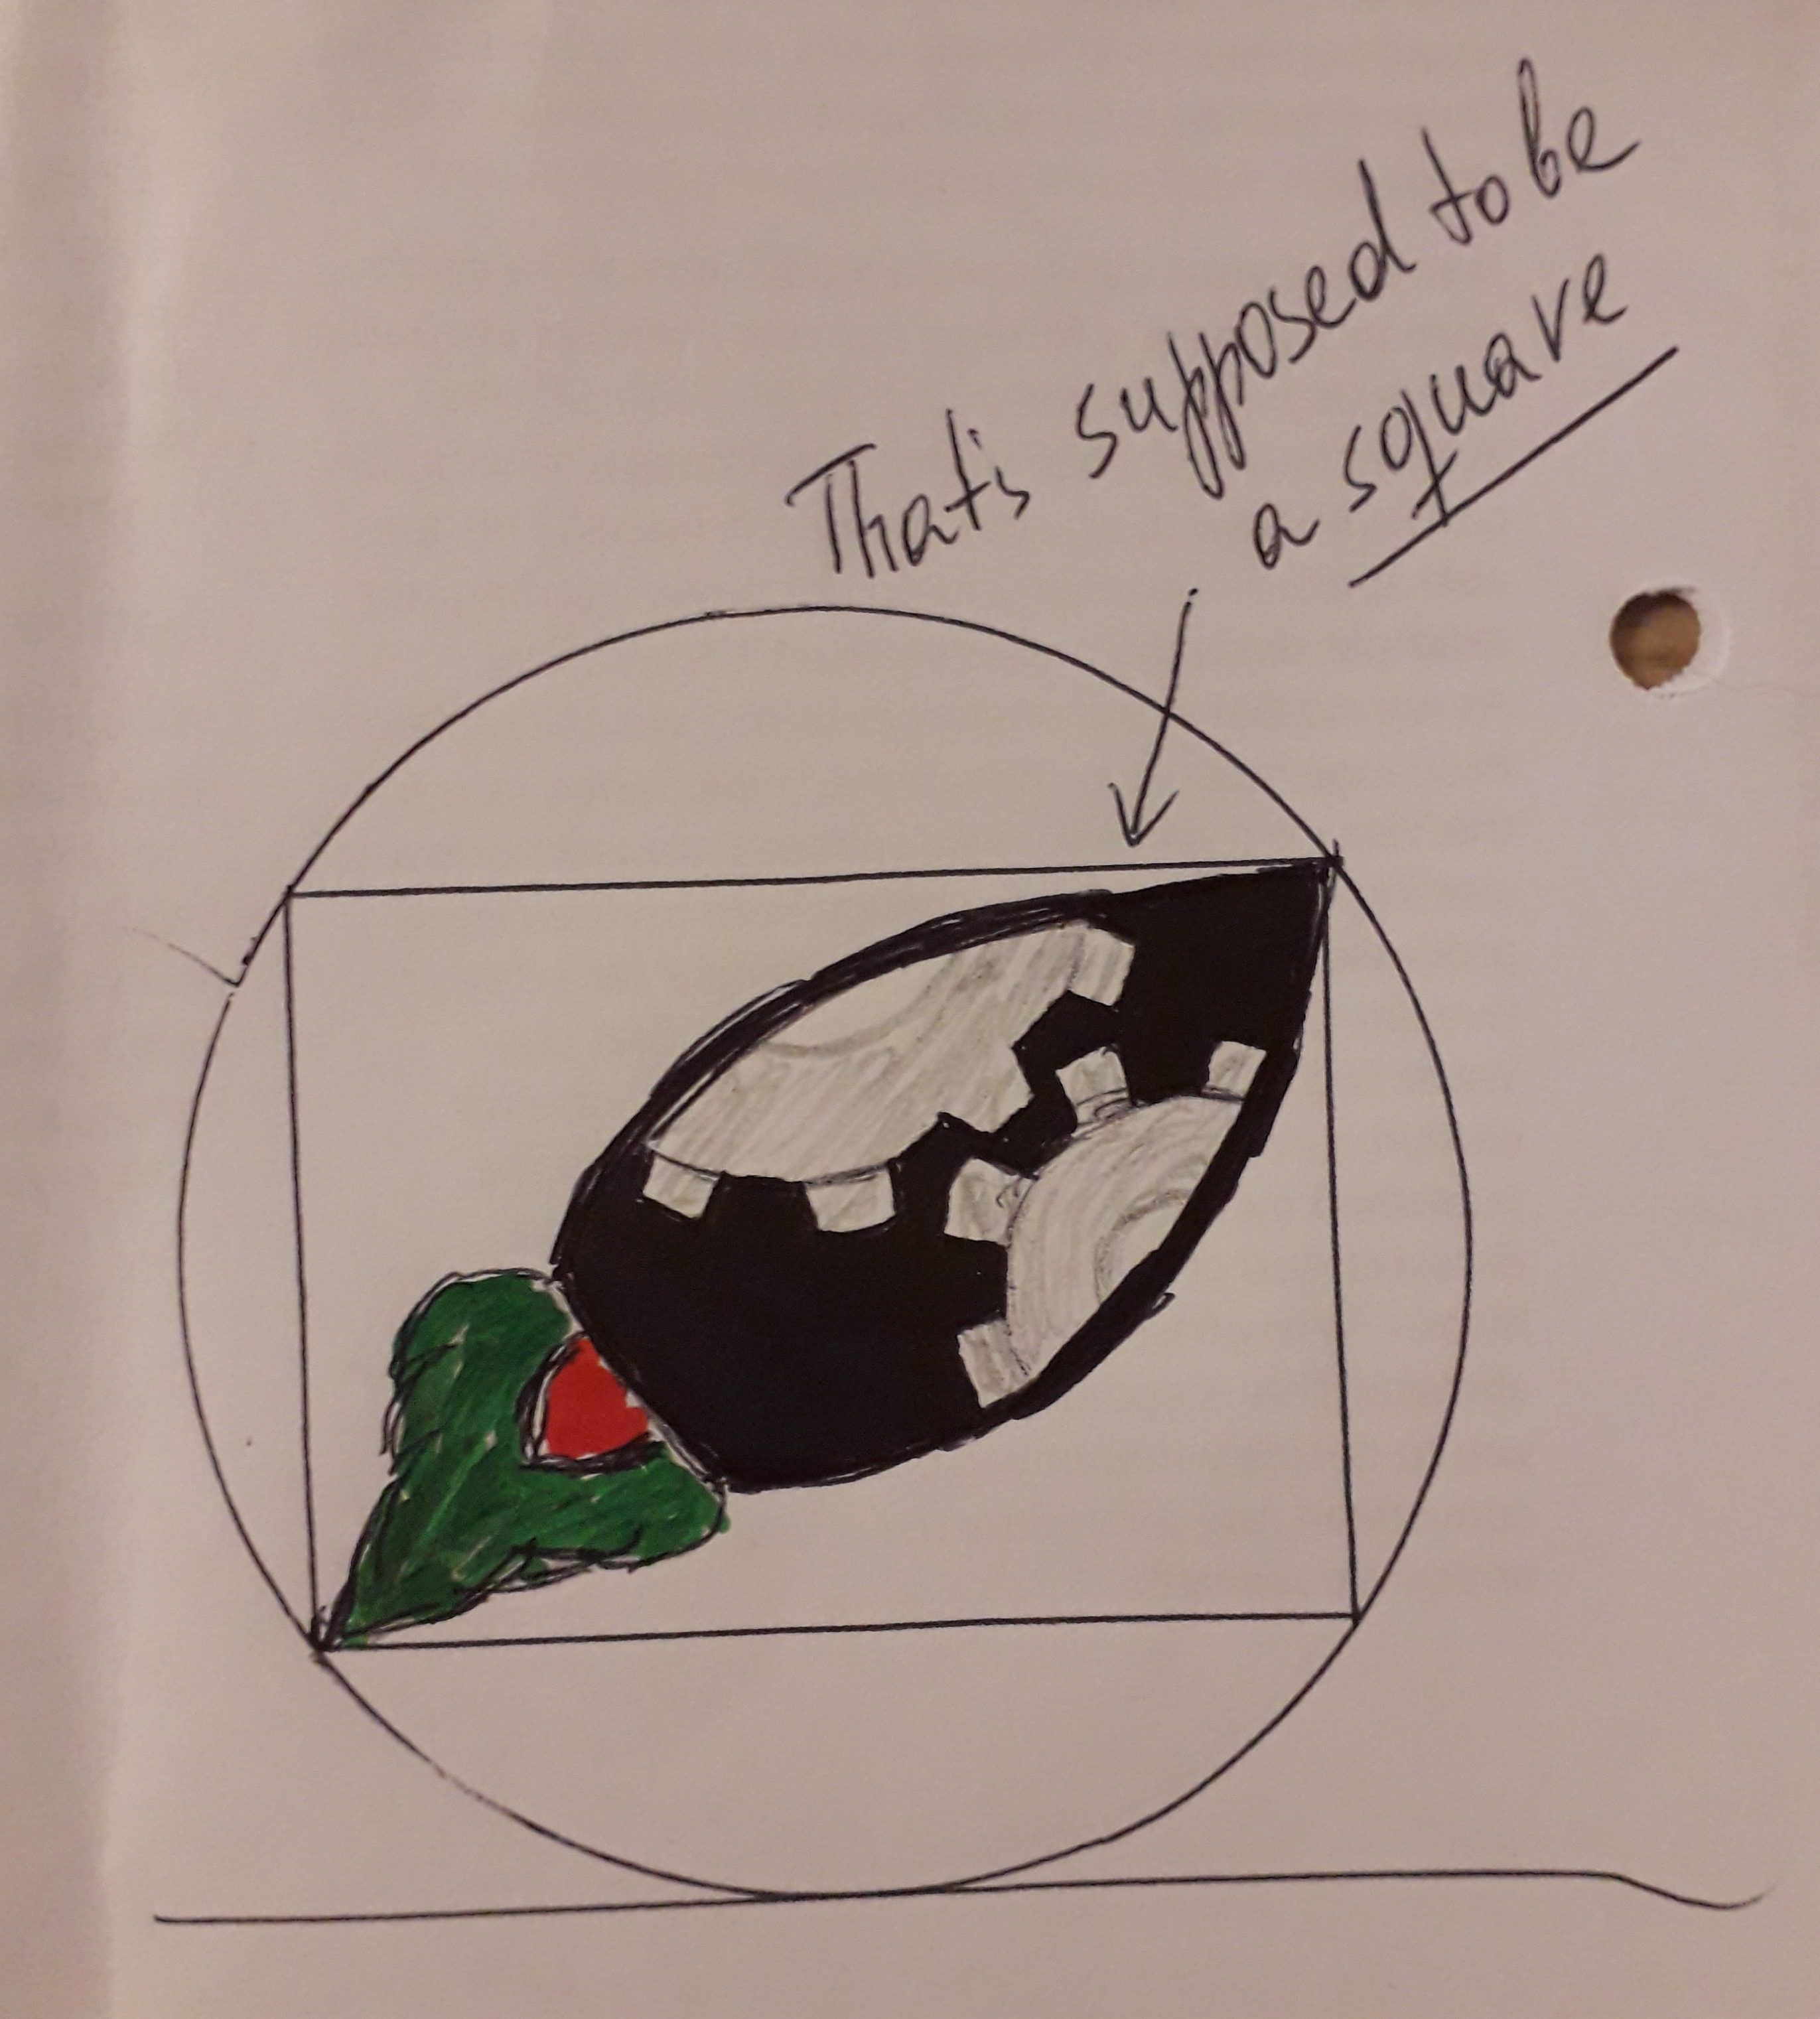 That's supposed to be
a square